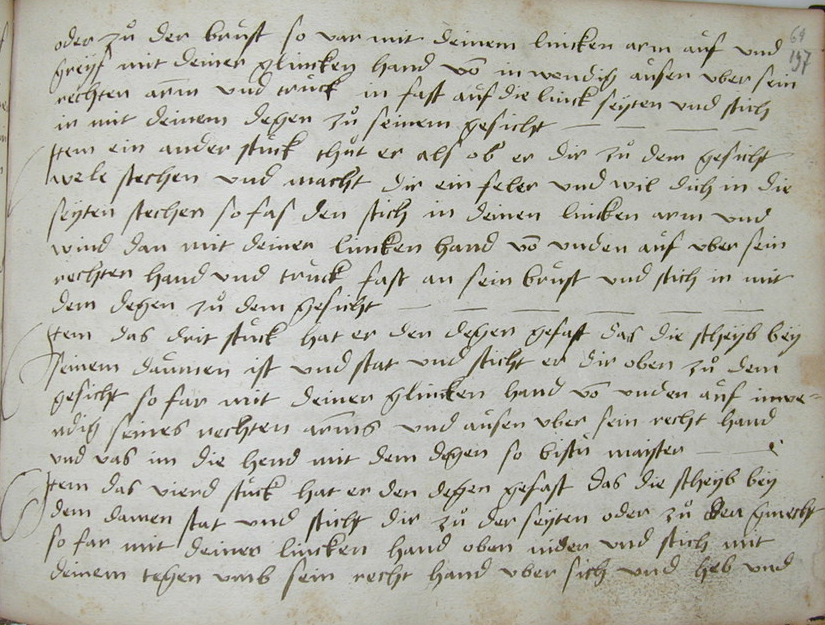 64
197
oder zů der brust so var mit deinem lincken arm auf und
greyf mit deiner glincken hand vō inwendig ausen uber sein
rechten arm und truck in fast auf die linck seyten und stich
in mit deinem degen zů seinem gesicht
Item ein ander stuck thůt er als ob er dir zů dem gesicht
wele stechen und macht dir ein feler und wil dich in die
seyten stechen so fas den stich in deinen lincken arm und
wind dan mit deiner lincken hand vō unden auf uber sein
rechten hand und truck fast an sein brust und stich in mit
dem degen zů dem gesicht
Item das drit stuck hat er den degen gefast das die scheyb bey
seinem daumen ist und stat und sticht er dir oben zů dem
gesicht so far mit deiner glincken hand vō unden auf inwe=
ndig seines rechten arms und ausen uber sein recht hand
und vas im die hend mit dem degen so bistu maister
Item das vierd stuck hat er den degen gefast das die scheyb bey
dem damen stat und sticht dir zů der seyten oder zů der gmecht
so far mit deiner lincken hand oben nider und stich mit
deinem tegen umb sein recht hand uber sich und heb und